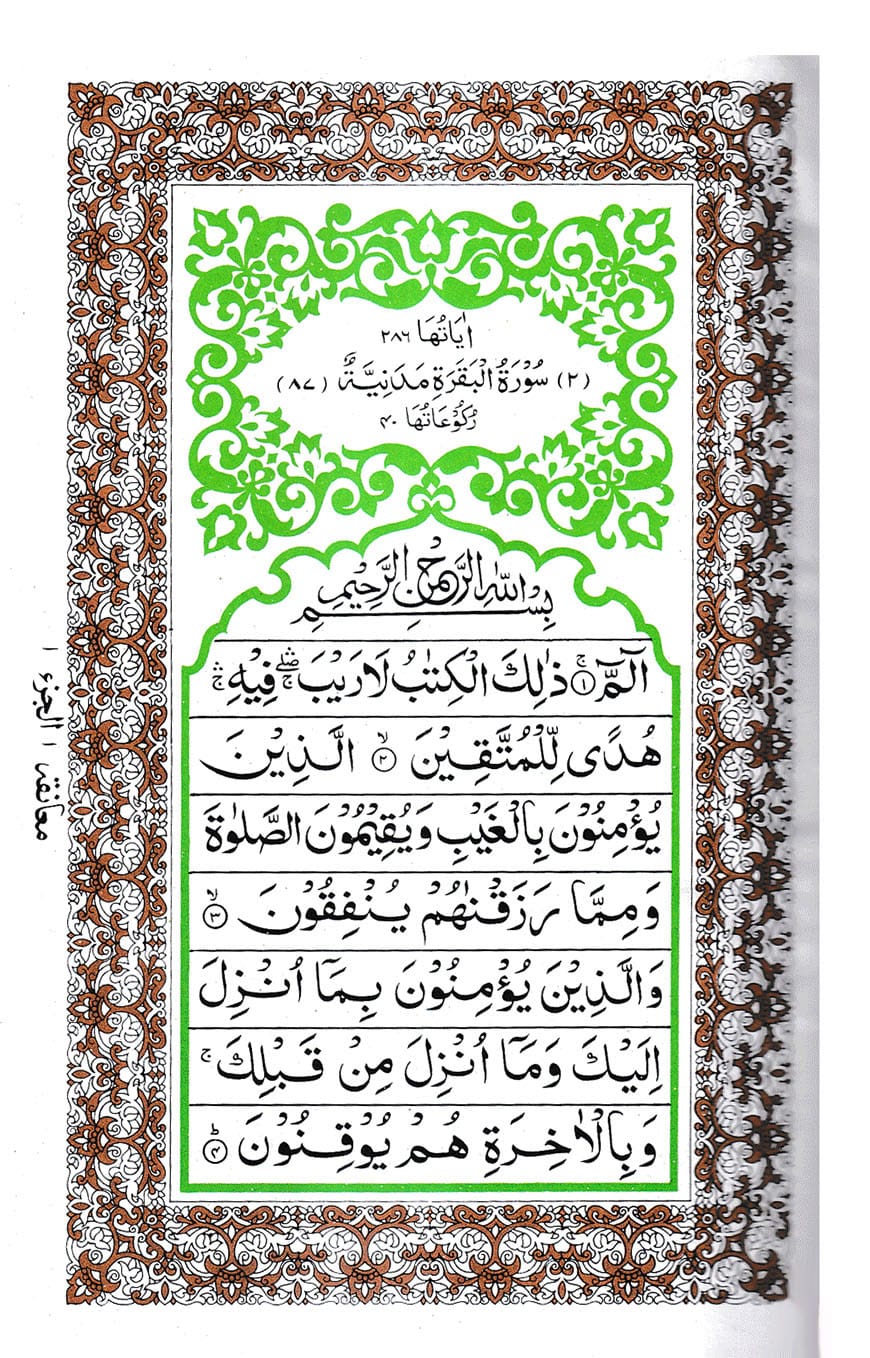 اٰیَاتُهَا ۲۸۶
(۲) سُوْرَةُ الْبَقَرَةِ مَدَنِيَّةٌ (۸۷)
رُكُوْعَاتُهَا ۴۰
بِسْمِ اللّٰهِ الرَّحْمٰنِ الرَّحِيْمِ
الٓمّٓ ۚ ﴿۱﴾ ذٰلِكَ الْكِتٰبُ لَا رَيْبَ ۛۖۚ فِيْهِ ۛۚ
هُدًى لِّلْمُتَّقِيْنَ ۙ ﴿۲﴾ الَّذِيْنَ
يُؤْمِنُوْنَ بِالْغَيْبِ وَيُقِيْمُوْنَ الصَّلٰوةَ
وَمِمَّا رَزَقْنٰهُمْ يُنْفِقُوْنَ ۙ ﴿۳﴾
وَالَّذِيْنَ يُؤْمِنُوْنَ بِمَآ اُنْزِلَ
اِلَيْكَ وَمَآ اُنْزِلَ مِنْ قَبْلِكَ ۚ
وَبِالْاٰخِرَةِ هُمْ يُوْقِنُوْنَ ؕ ﴿۴﴾
معانقہ ۱ الجزء ۱